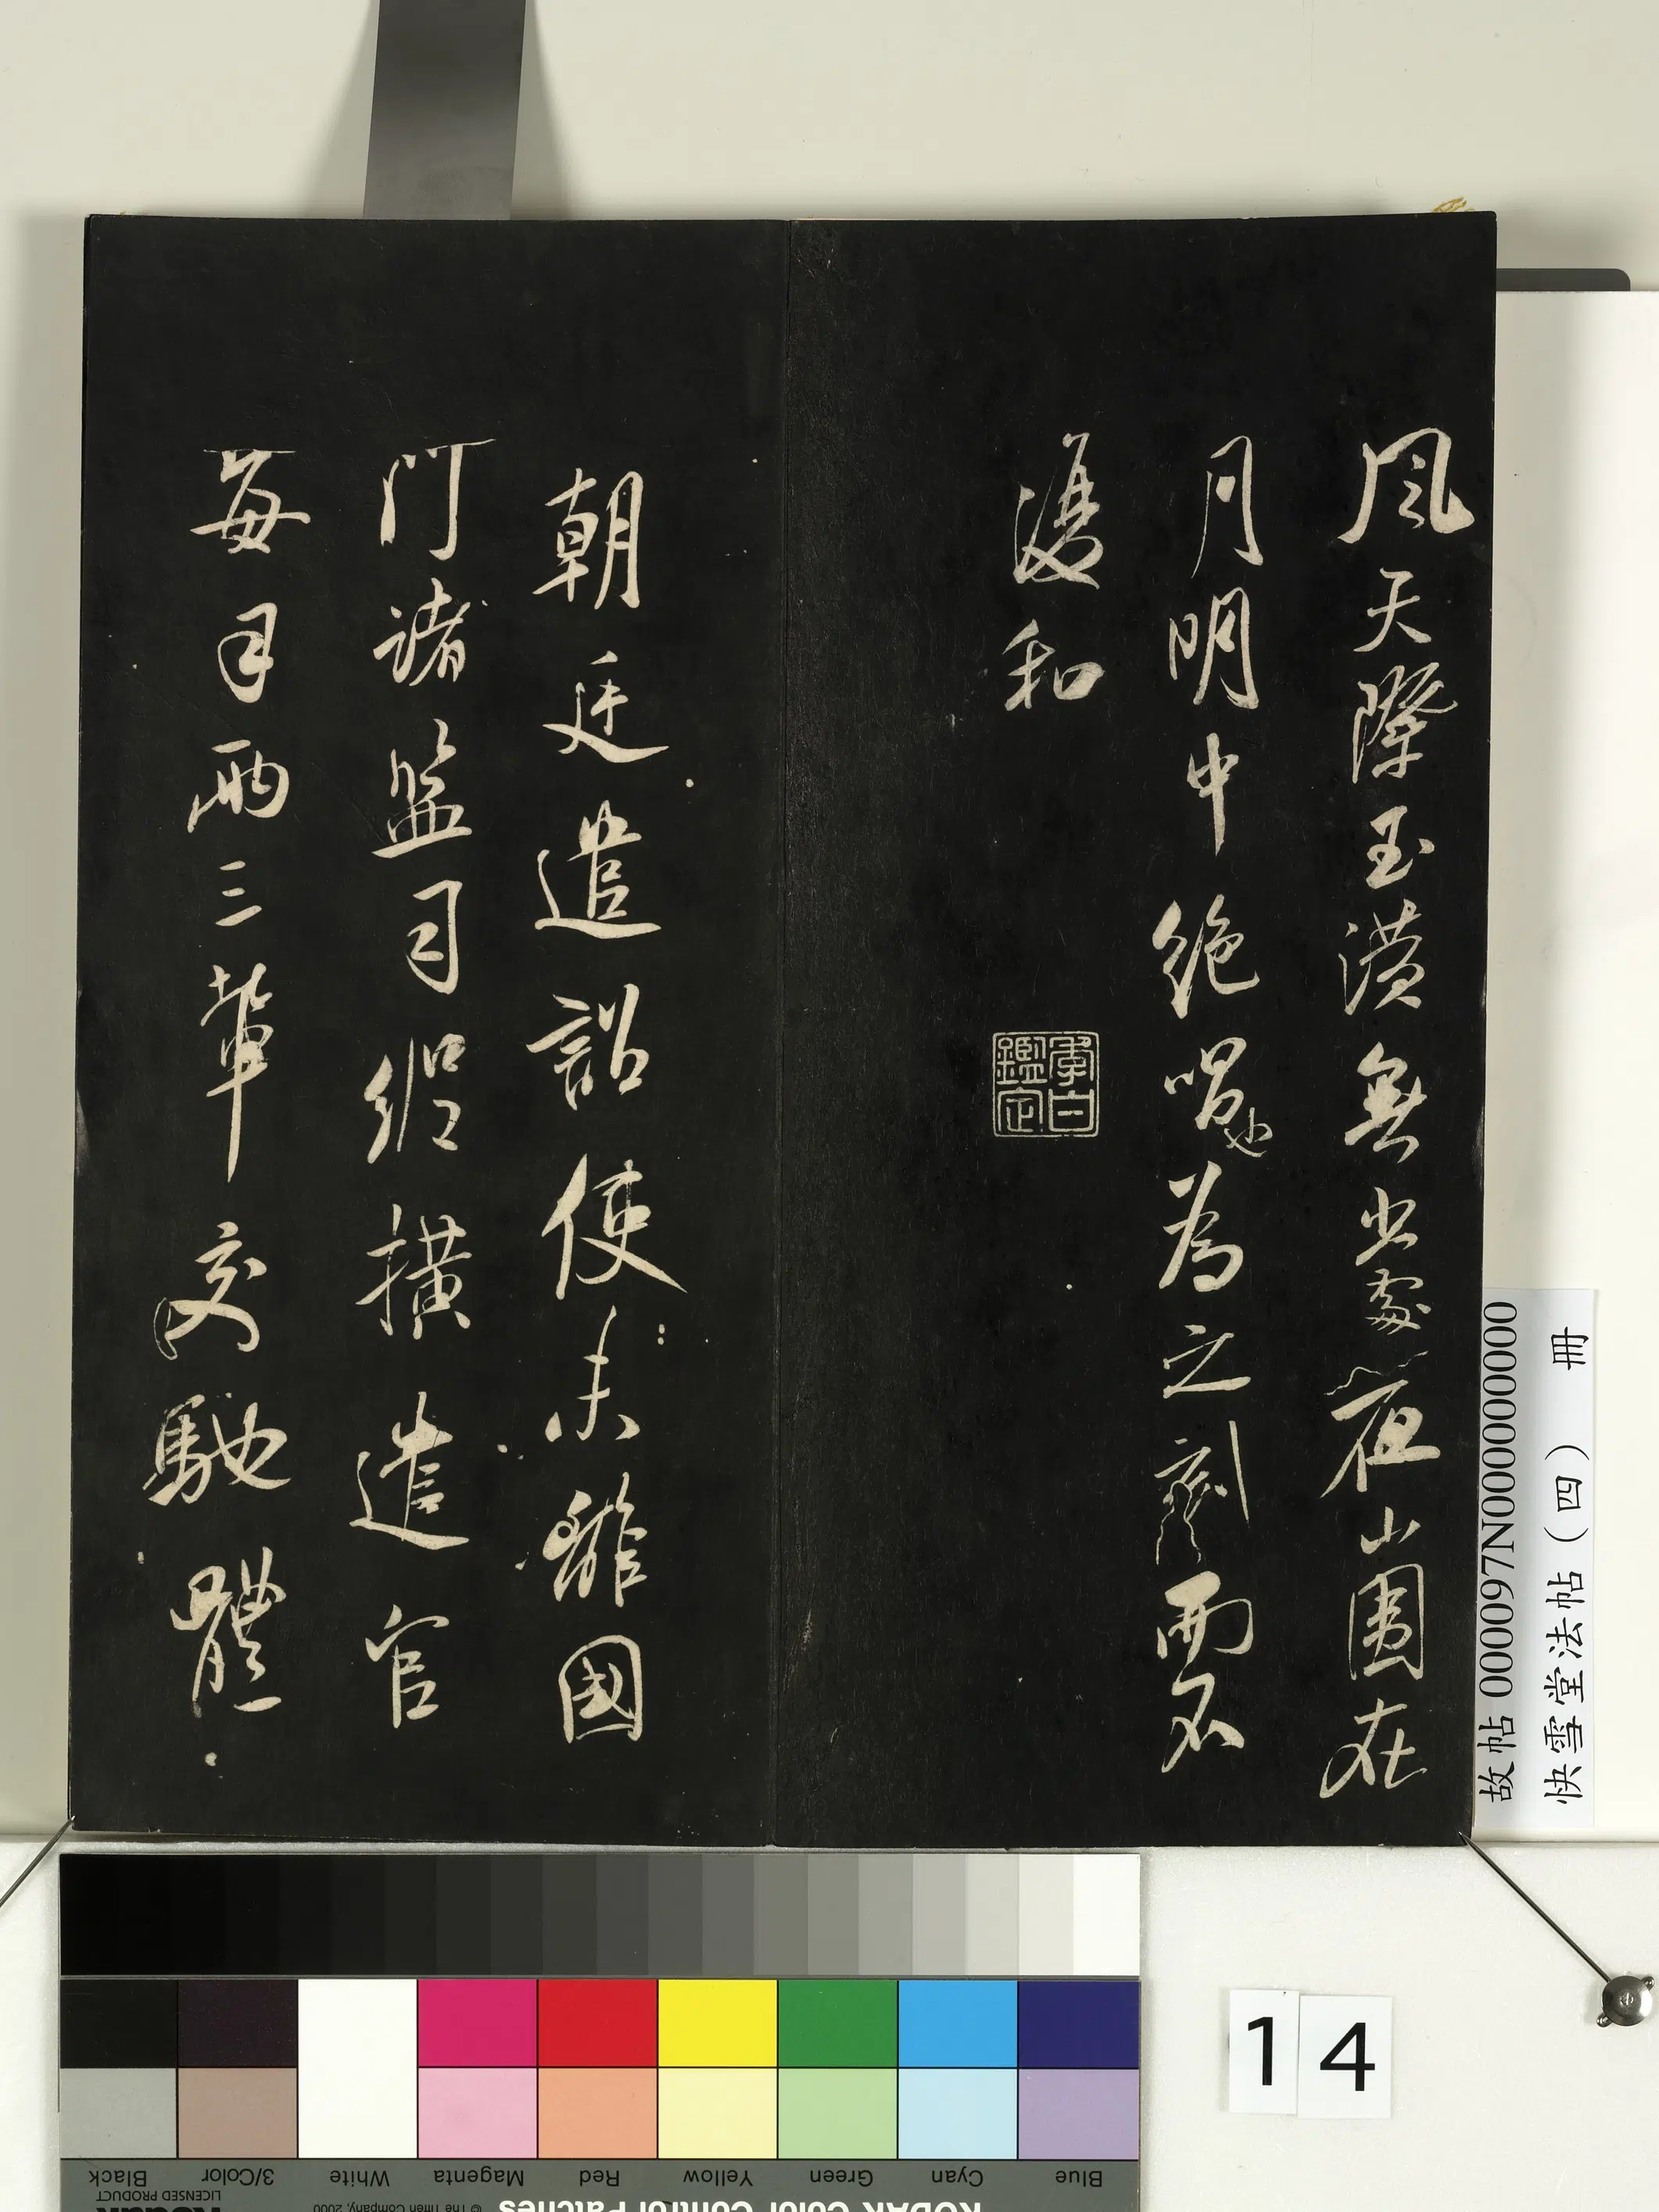 風天際玉潢無出處夜山圍在
月明中絕唱也為之刻而不
復和
季白
鑑定
朝廷遣詔使未離國
門諸監司縱橫遣官
每日兩三輩交馳體
故帖 000097N000000000
快雪堂法帖（四） 冊
14
Blue
Cyan
Green
Yellow
Red
Magenta
White
3/Color
Black
KODAK Color Control Patches
© The Tiffen Company, 2000
Kodak
LICENSED PRODUCT